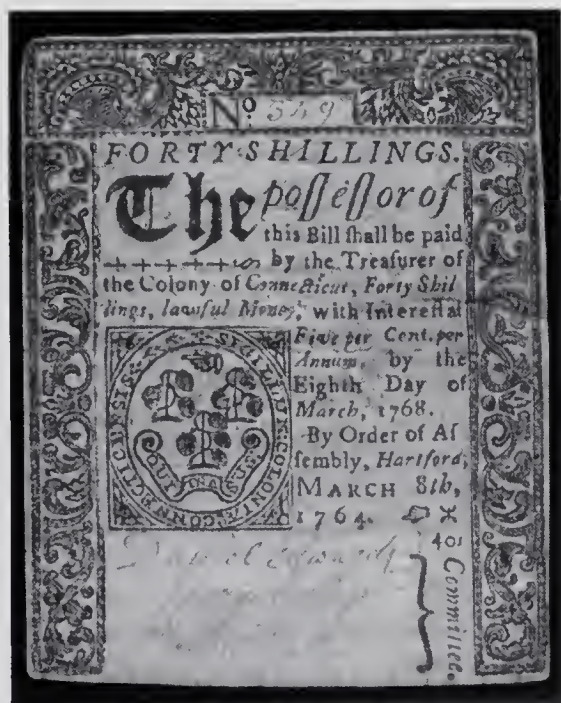 No. 549
FORTY SHILLINGS.
The poſſeſſor of
this Bill ſhall be paid
by the Treaſurer of
the Colony of Connecticut, Forty Shil
lings, lawful Money, with Intereſt at
Five per Cent. per
Annum, by the
Eighth Day of
March, 1768.
By Order of Aſ
ſembly, Hartford,
MARCH 8th,
1764.
40s
Committee.
SIGILLUM COLONIÆ CONNECTICUTENSIS